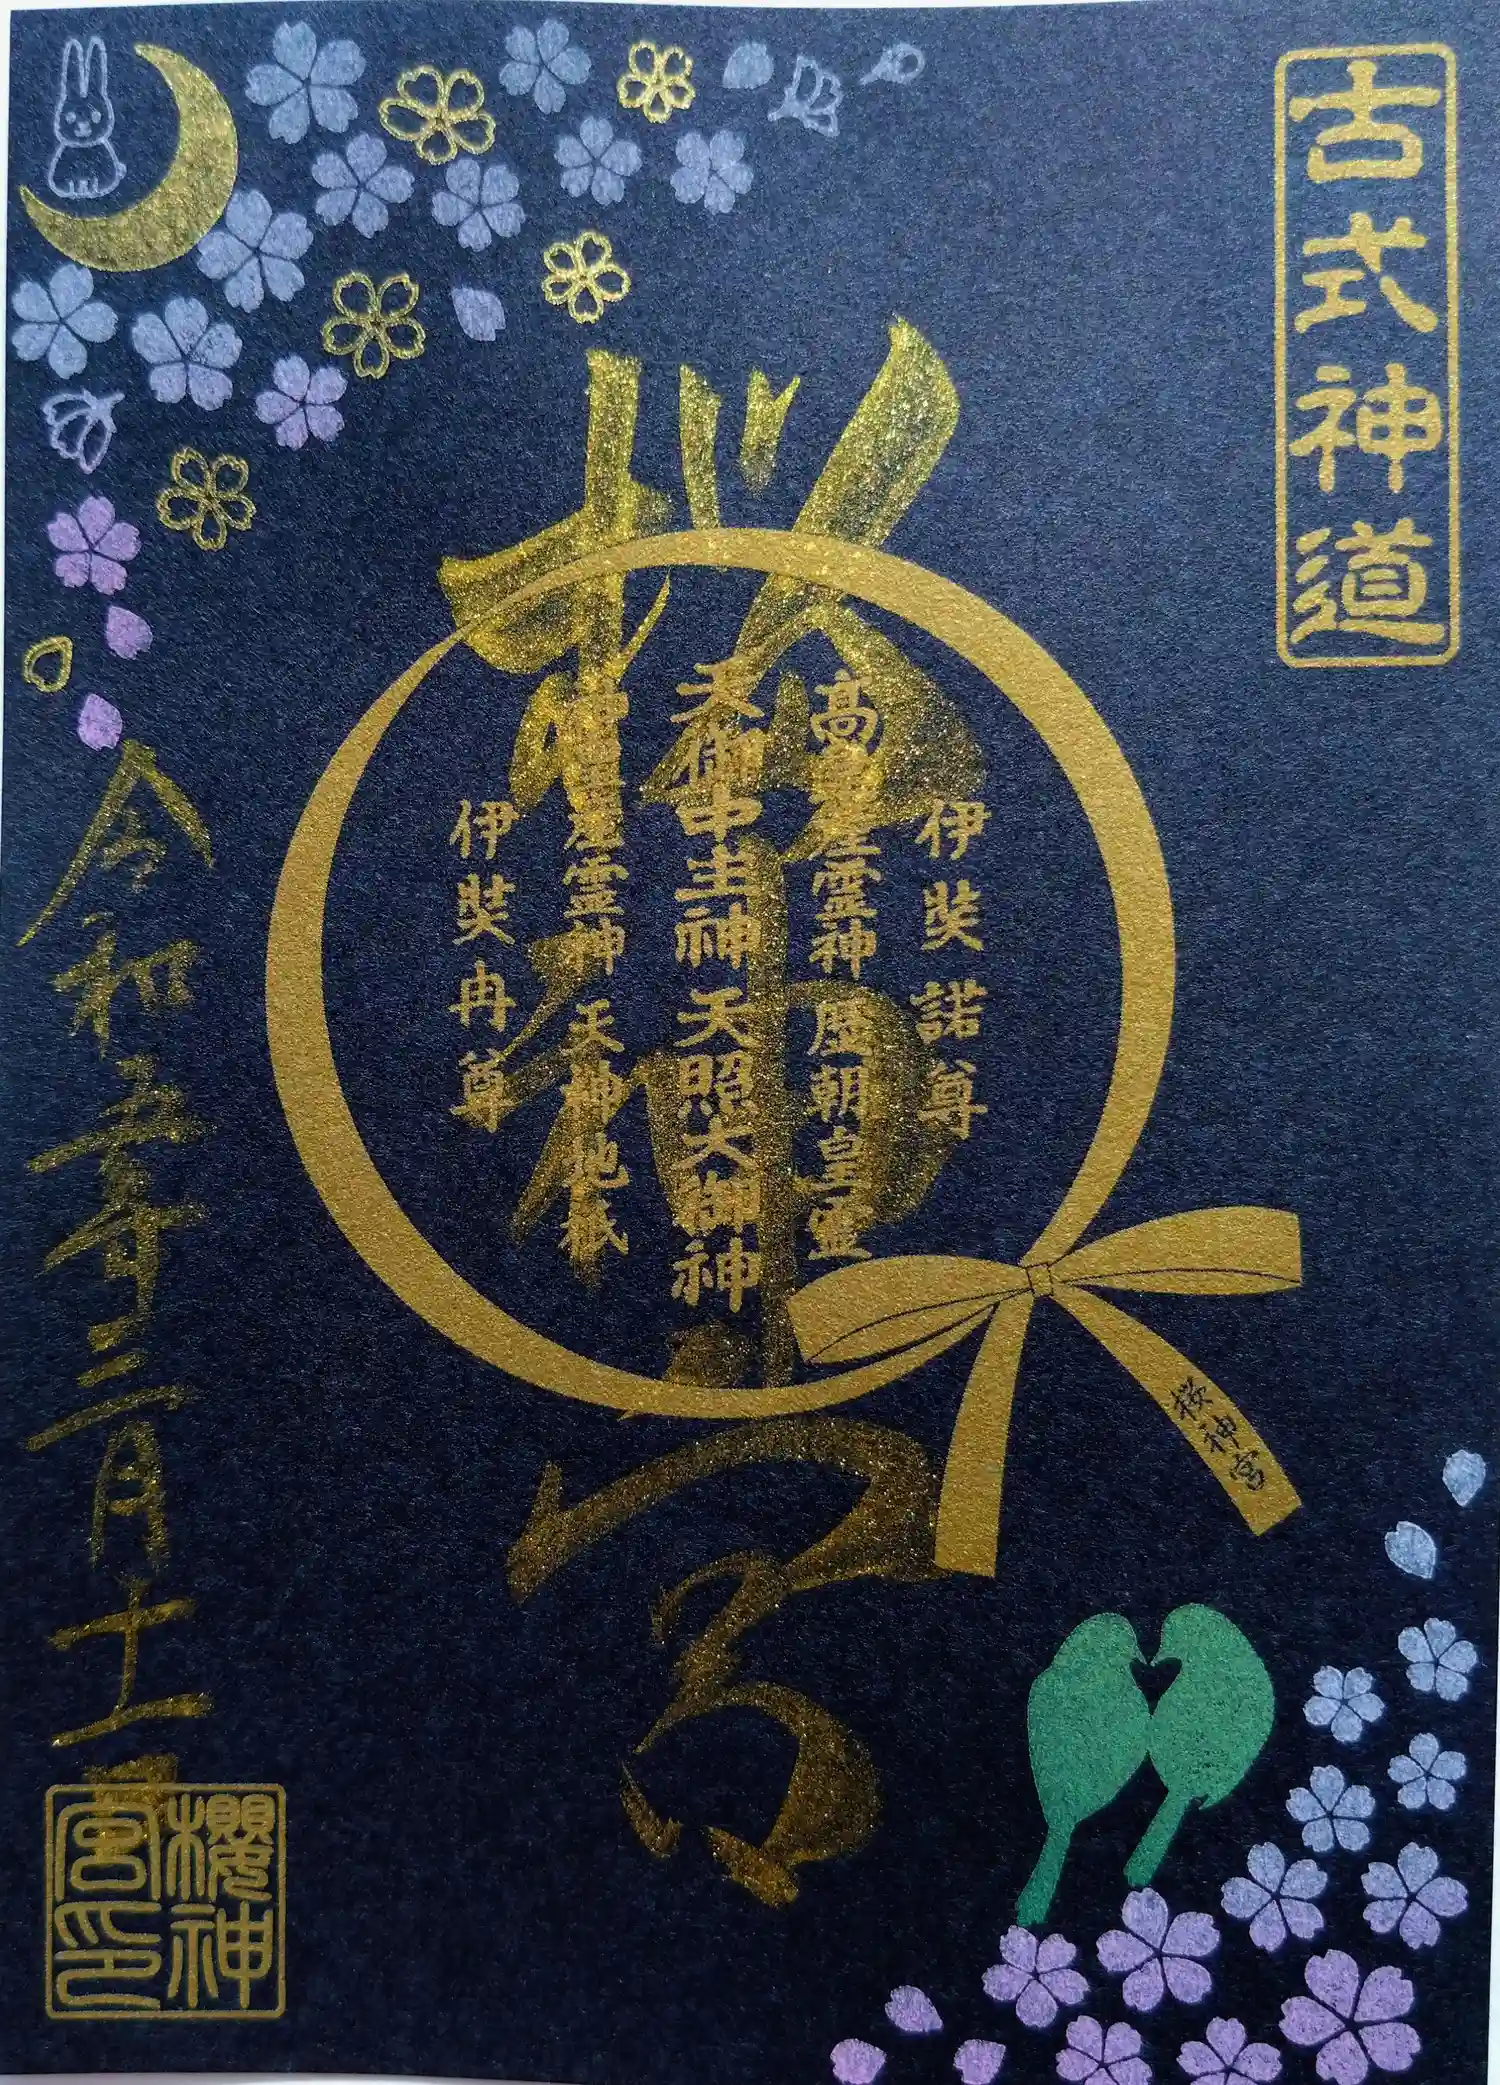 古式神道
桜神宮
伊奘諾尊
高皇産霊神 歴朝皇霊
天御中主神 天照大御神
神皇産霊神 天神地祇
伊奘冉尊
桜神宮
令和五年三月十一日
櫻神
宮印